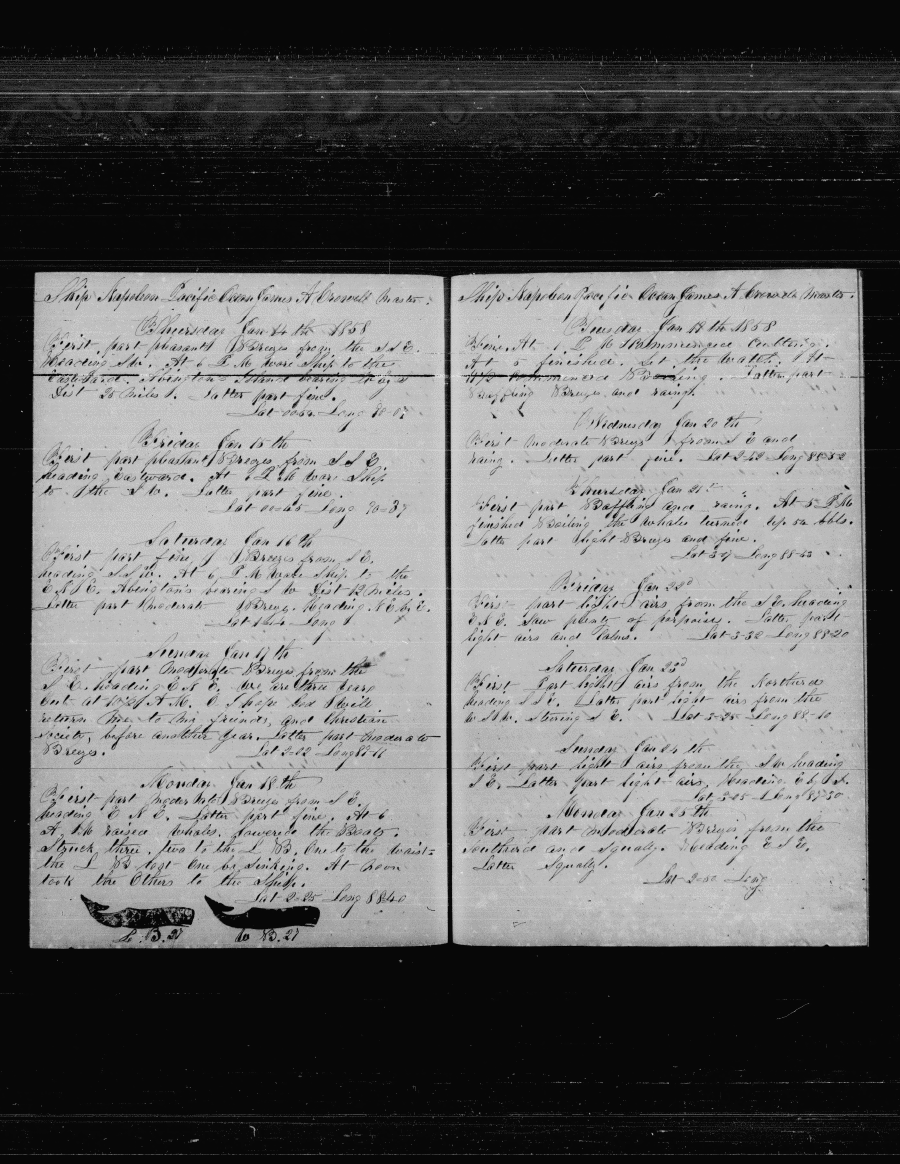 Ship Napoleon Pacific Ocean James A Crowell Master
Thursday Jan 14th 1858
First part pleasant Breezes from the S S E.
Heading S W. At 6 P. M. wore Ship to the
Eastward. Abington Island bearing
Dist 25 miles. Latter part fine.
Lat 00=54 Long 90=07
Friday Jan 15th
First part pleasant Breezes from S S E
heading Eastward. At 6 P M wore Ship
to the S W. Latter part fine.
Lat 00=45 Long 90=37
Saturday Jan 16th
First part fine Breezes from S. E.
heading S. S W. At 6 P M wore Ship to the
E N E. Abingtons bearing S W Dist 12 miles.
Latter part moderate Breezes. Heading N. E by E.
Lat Long
Sunday Jan 17th
First part moderate Breezes from the
S E. heading E N E. We are three years
out at A. M. I hope God I will
return me to my friends, and Christian
Society, before another year. Latter part moderate
Breezes. Lat 2=02 Long 89=16
Monday Jan 18th
First part moderate Breezes from S E.
heading E N E. Latter part fine. At 6
A. M raised whales. Lowered the Boats.
Struck three, two to the L B. One to the waist=
the L B lost One by Sinking. At noon
took the Others to the Ship.
Lat 2=25 Long 88=40
L. B. 27 W B. 27
Ship Napoleon Pacific Ocean James A Crowell Master.
Tuesday Jan 19th 1858
Fine. At 1 P. M. Commenced Cutting.
At 5 finished. Set the Watch. At
commenced Boiling. Latter part
Breezes and rainy.
Wednesday Jan 20th
First moderate Breezes from S E and
rainy. Latter part fine. Lat 2=42 Long 88=52
Thursday Jan 21st
First part Baffling and rainy. At 5 P. M
finished Boiling the whales turned up 52 bbls.
Latter part light Breezes and fine.
Lat 3=07 Long 88=43
Friday Jan 22d
First part light airs from the S E. heading
E N E. Saw plenty of porpoises. Latter part
light airs and Calms. Lat 3=32 Long 88=20
Saturday Jan 23d
First part light airs from the Northerd
heading S S E. Latter part light air from the
W S W. stering S E. Lat 3=25 Long 88=10
Sunday Jan 24th
First part light airs from the S W heading
S E. Latter part light airs, Heading E by S.
Lat 3=25 Long 87=30
Monday Jan 25th
First part moderate Breezes from the
Southerd and Squally. Heading E S E.
Latter Squally.
Lat Long